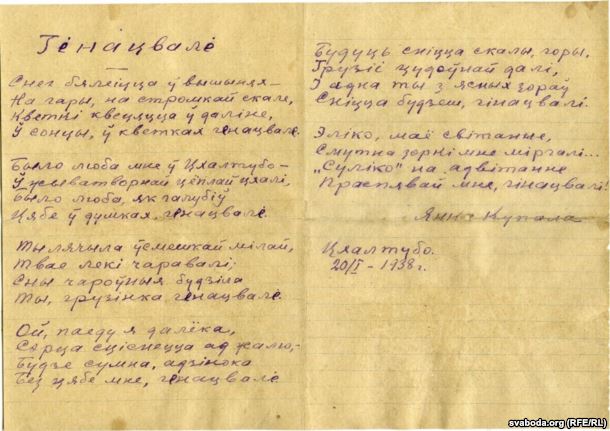 Гінацвалі
Снег бялеіцца ў вышынях—
На гары, на стромкай скале,
Кветкі ў даліне,
Ў сонцы, ў кветках гінацвалі.
Было люба мне ў Цхалтубо—
Ў жыватворнай цёплай цхалі,
Было люба, як галубіў
Цябе ў думках, гінацвалі.
Ты лячыла ўсмешкай мілай,
Твае лекі чаравалі;
Сны чароўныя будзіла
Ты, грузінка, гінацвалі.
Ой, паеду я далёка,
Сэрца сціснецца ад жалю,-
Будзе сумна, адзінока
Без цябе мне, гінацвалі
Будуць сніцца скалы, горы,
Грузіі цудоўнай далі,
І адна ты з ясных зораў
Сніцца будзеш, гінацвалі.
Эліко, маё світанне,
Смутна зорні мне міргалі...
„Суліко" на адвітанне
Праспявай мне, гінацвалі!
Янка Купала
Цхалтубо.
20/I – 1938 г.
svaboda.org (RFE/RL)